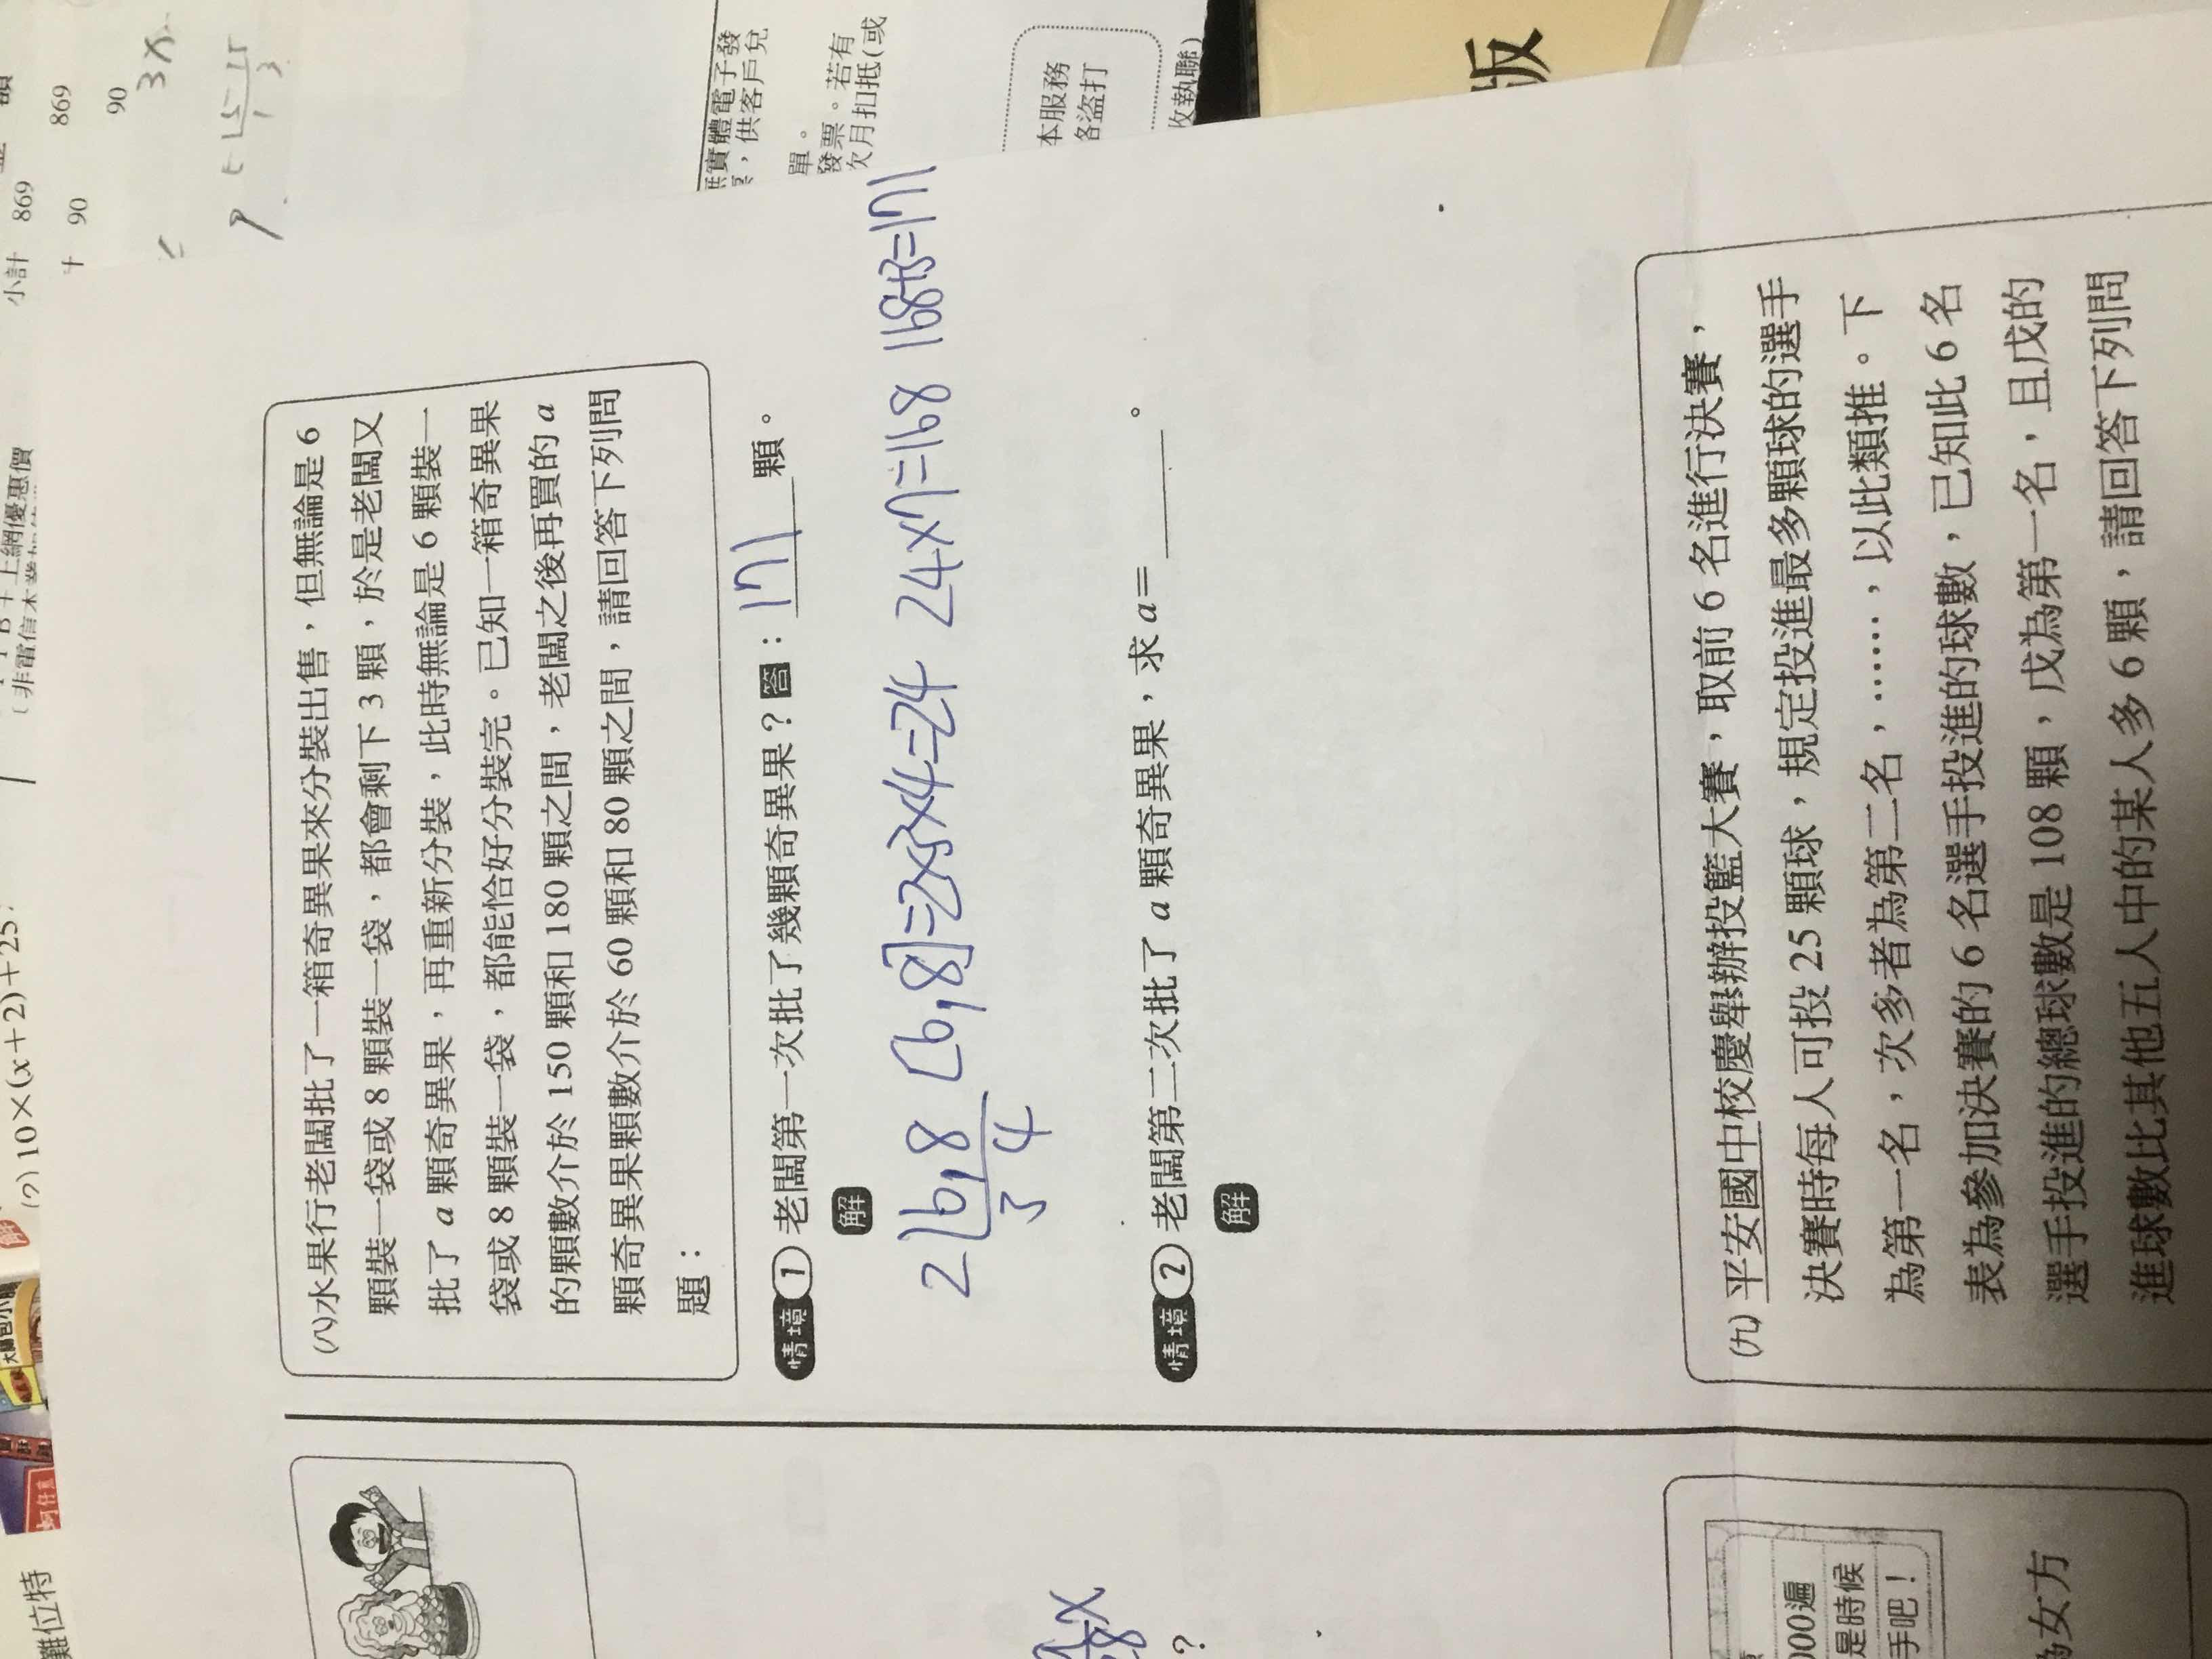 (2) 10×(x+2)+25
(八)水果行老闆批了一箱奇異果來分裝出售，但無論是 6
顆裝一袋或 8 顆裝一袋，都會剩下 3 顆，於是老闆又
批了 a 顆奇異果，再重新分裝，此時無論是 6 顆裝一
袋或 8 顆裝一袋，都能恰好分裝完。已知一箱奇異果
的顆數介於 150 顆和 180 顆之間，老闆之後再買的 a
顆奇異果顆數介於 60 顆和 80 顆之間，請回答下列問
題：
情境 1 老闆第一次批了幾顆奇異果？答：171 顆。
解
2 6,8 [6,8]=2×3×4=24 24×7=168 168+3=171
3 4
情境 2 老闆第二次批了 a 顆奇異果，求 a= 。
解
(九)平安國中校慶舉辦投籃大賽，取前 6 名進行決賽，
決賽時每人可投 25 顆球，規定投進最多顆球的選手
為第一名，次多者為第二名，……，以此類推。下
表為參加決賽的 6 名選手投進的球數，已知此 6 名
選手投進的總球數是 108 顆，戊為第一名，且戊的
進球數比其他五人中的某人多 6 顆，請回答下列問
小計 869
869
90
90
3x
上網優惠價
單。
發票。若有
次月扣抵(或
實體電子發
，供客戶兌
本服務
盜打
收執聯)
版
難位特
000遍
是時候
手吧！
女方
？